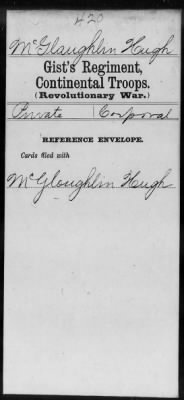 420
McGlaughlin Hugh
Gist's Regiment,
Continental Troops.
(Revolutionary War.)
Private | Corporal
REFERENCE ENVELOPE.
Cards filed with
McGloughlin Hugh